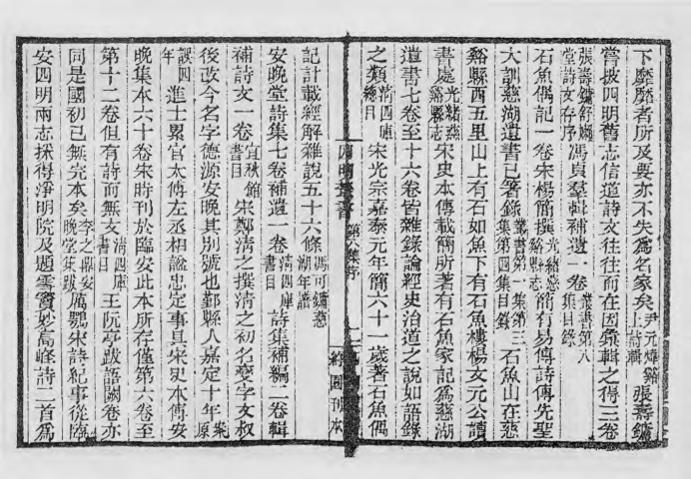 下靡靡者所及要亦不失爲名家矣尹元煒谿上詩輯張壽鏞
嘗披四明舊志信道詩文往往而在因彙輯之得三卷
張壽鏞舒嬾堂詩文存序馮貞羣輯補遺一卷叢書第八集目錄
石魚偶記一卷宋楊簡撰光緒慈谿縣志簡有易傳詩傳先聖
大訓慈湖遺書已著錄叢書第一集第三集第四集目錄石魚山在慈
谿縣西五里山上有石如魚下有石魚樓楊文元公讀
書處光緒慈谿縣志宋史本傳載簡所著有石魚家記爲慈湖
遺書七卷至十六卷皆雜錄論經史治道之說如語錄
之類清四庫總目宋光宗嘉泰元年簡六十一歲著石魚偶
四明叢書 第八集序 約園刊本
記計載經解雜說五十六條馮可鏞慈湖年譜
安晚堂詩集七卷補遺一卷清四庫書目詩集補編二卷輯
補詩文一卷宜秋館書目宋鄭清之撰清之初名燮字文叔
後改今名字德源安晚其別號也鄞縣人嘉定十年案原
誤四年進士累官太傅左丞相諡忠定事具宋史本傳安
晚集本六十卷宋時刊於臨安此本所存僅第六卷至
第十二卷但有詩而無文清四庫書目王阮亭跋語闕卷亦
同是國初已無完本矣李之鼎安晚堂集跋厲鶚宋詩紀事從臨
安四明兩志採得淨明院及題雲竇妙高峰詩二首爲